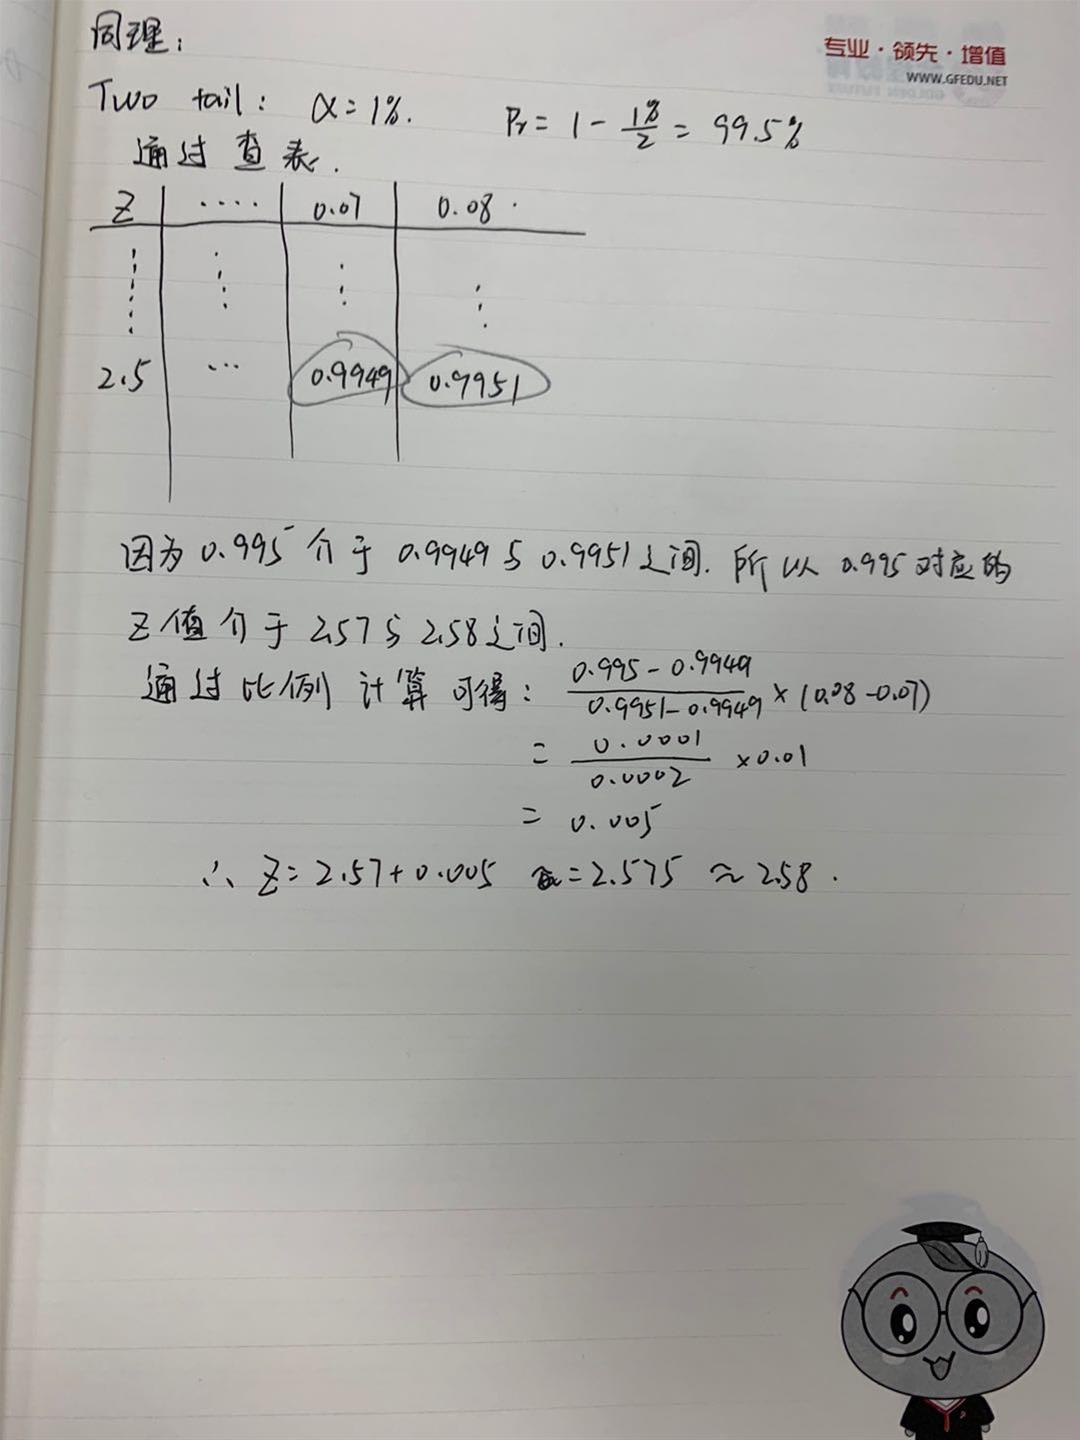 同理：
专业·领先·增值
WWW.GFEDU.NET
Two tail: α=1%. Pr = 1 - 1%/2 = 99.5%
通过查表.
Z ···· 0.07 0.08
2.5 ··· 0.9949 0.9951
因为 0.995 介于 0.9949 与 0.9951 之间. 所以 0.995 对应的
Z值介于 2.57 与 2.58 之间.
通过比例计算可得： (0.995-0.9949)/(0.9951-0.9949) × (0.08-0.07)
= 0.0001/0.0002 ×0.01
= 0.005
∴ Z = 2.57+0.005 = 2.575 ≈ 2.58.